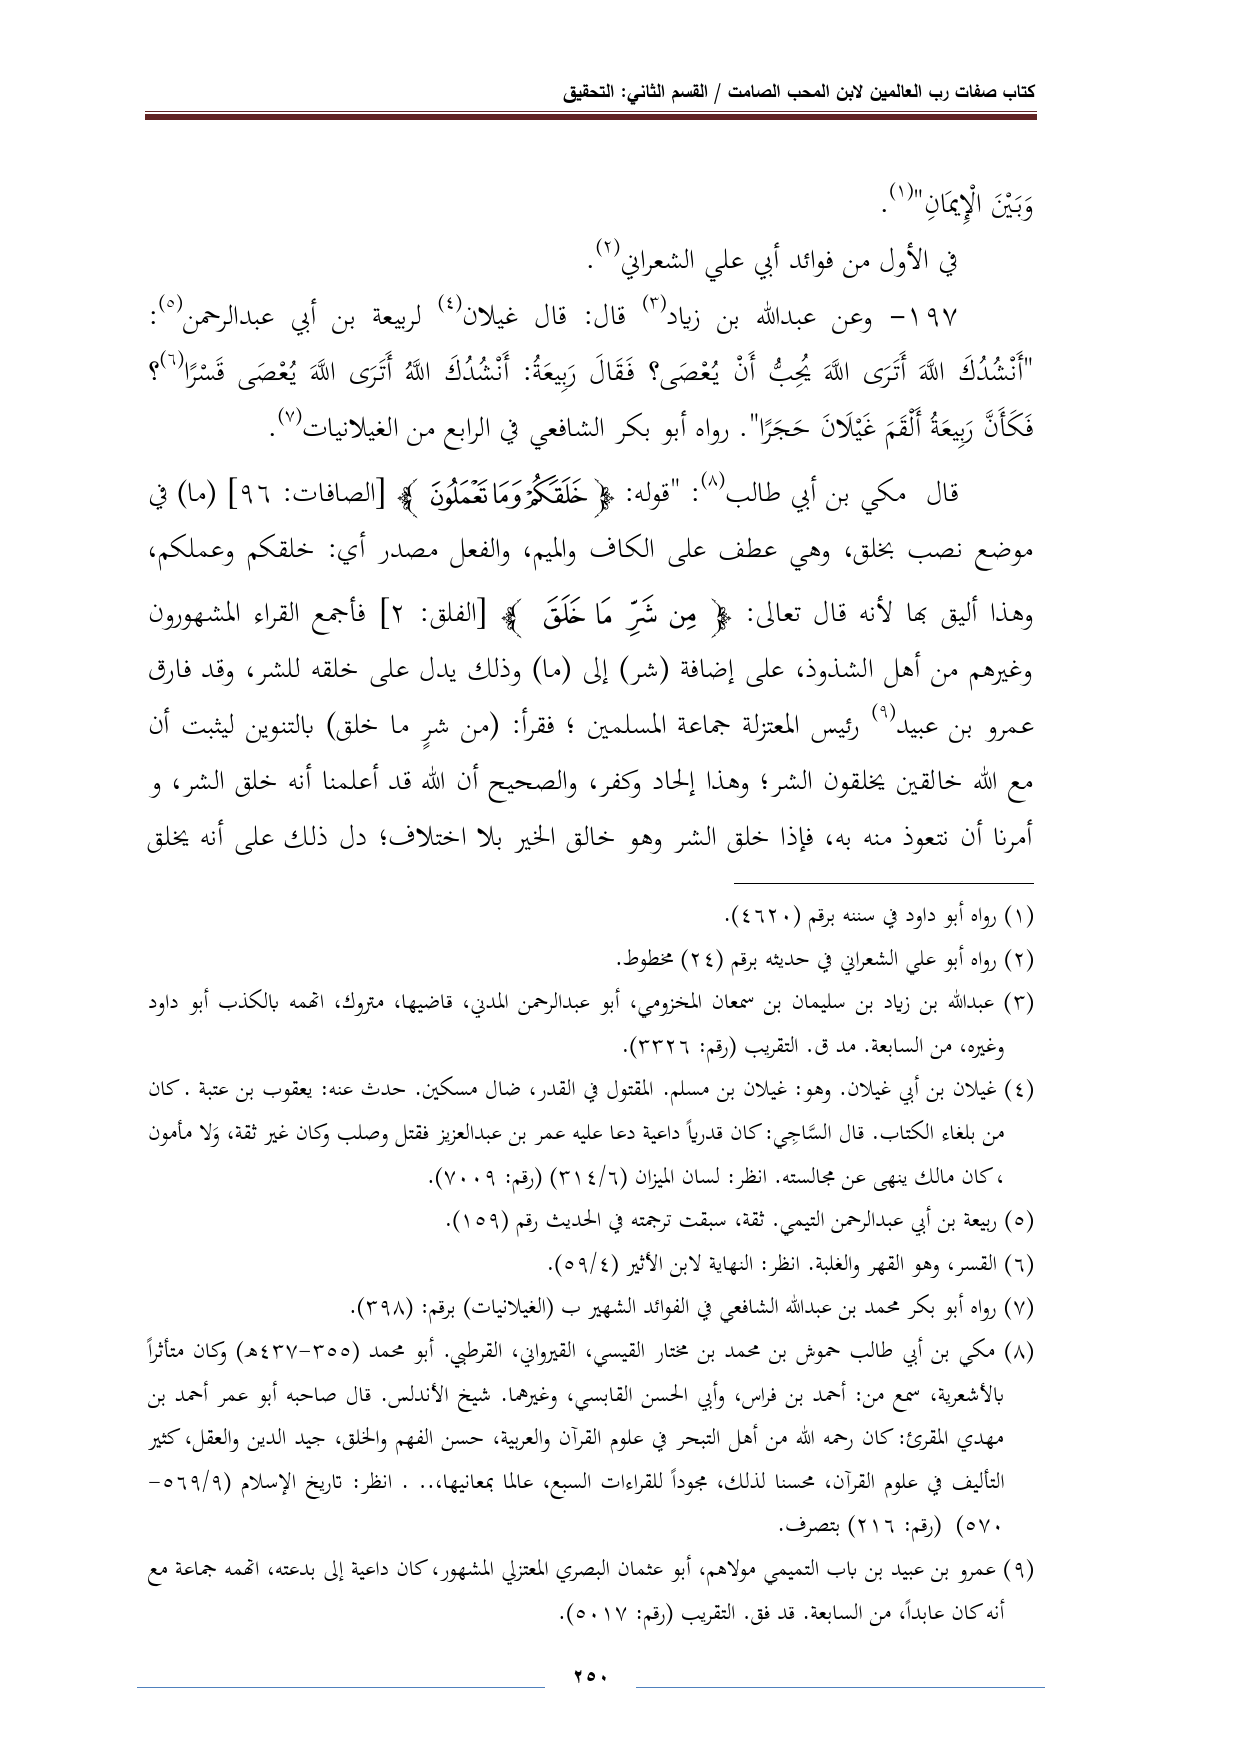 كتاب صفات رب العالمين لابن المحب الصامت / القسم الثاني: التحقيق
وَبَيْنَ الْإِيمَانِ"(١).
في الأول من فوائد أبي علي الشعراني(٢).
١٩٧- وعن عبدالله بن زياد(٣) قال: قال غيلان(٤) لربيعة بن أبي عبدالرحمن(٥):
"أَنْشُدُكَ اللَّهَ أَتَرَى اللَّهَ يُحِبُّ أَنْ يُعْصَى؟ فَقَالَ رَبِيعَةُ: أَنْشُدُكَ اللَّهُ أَتَرَى اللَّهَ يُعْصَى قَسْرًا(٦)؟
فَكَأَنَّ رَبِيعَةُ أَلْقَمَ غَيْلَانَ حَجَرًا". رواه أبو بكر الشافعي في الرابع من الغيلانيات(٧).
قال مكي بن أبي طالب(٨): "قوله: ﴿ خَلَقَكُمْ وَمَا تَعْمَلُونَ ﴾ [الصافات: ٩٦] (ما) في
موضع نصب بخلق، وهي عطف على الكاف والميم، والفعل مصدر أي: خلقكم وعملكم،
وهذا أليق بها لأنه قال تعالى: ﴿ مِن شَرِّ مَا خَلَقَ ﴾ [الفلق: ٢] فأجمع القراء المشهورون
وغيرهم من أهل الشذوذ، على إضافة (شر) إلى (ما) وذلك يدل على خلقه للشر، وقد فارق
عمرو بن عبيد(٩) رئيس المعتزلة جماعة المسلمين ؛ فقرأ: (من شرٍ ما خلق) بالتنوين ليثبت أن
مع الله خالقين يخلقون الشر؛ وهذا إلحاد وكفر، والصحيح أن الله قد أعلمنا أنه خلق الشر، و
أمرنا أن نتعوذ منه به، فإذا خلق الشر وهو خالق الخير بلا اختلاف؛ دل ذلك على أنه يخلق
(١) رواه أبو داود في سننه برقم (٤٦٢٠).
(٢) رواه أبو علي الشعراني في حديثه برقم (٢٤) مخطوط.
(٣) عبدالله بن زياد بن سليمان بن سمعان المخزومي، أبو عبدالرحمن المدني، قاضيها، متروك، اتهمه بالكذب أبو داود
وغيره، من السابعة. مد ق. التقريب (رقم: ٣٣٢٦).
(٤) غيلان بن أبي غيلان. وهو: غيلان بن مسلم. المقتول في القدر، ضال مسكين. حدث عنه: يعقوب بن عتبة . كان
من بلغاء الكتاب. قال السَّاجِي: كان قدرياً داعية دعا عليه عمر بن عبدالعزيز فقتل وصلب وكان غير ثقة، وَلا مأمون
، كان مالك ينهى عن مجالسته. انظر: لسان الميزان (٣١٤/٦) (رقم: ٧٠٠٩).
(٥) ربيعة بن أبي عبدالرحمن التيمي. ثقة، سبقت ترجمته في الحديث رقم (١٥٩).
(٦) القسر، وهو القهر والغلبة. انظر: النهاية لابن الأثير (٥٩/٤).
(٧) رواه أبو بكر محمد بن عبدالله الشافعي في الفوائد الشهير ب (الغيلانيات) برقم: (٣٩٨).
(٨) مكي بن أبي طالب حموش بن محمد بن مختار القيسي، القيرواني، القرطبي. أبو محمد (٣٥٥-٤٣٧هـ) وكان متأثراً
بالأشعرية، سمع من: أحمد بن فراس، وأبي الحسن القابسي، وغيرهما. شيخ الأندلس. قال صاحبه أبو عمر أحمد بن
مهدي المقرئ: كان رحمه الله من أهل التبحر في علوم القرآن والعربية، حسن الفهم والخلق، جيد الدين والعقل، كثير
التأليف في علوم القرآن، محسنا لذلك، مجوداً للقراءات السبع، عالما بمعانيها،.. . انظر: تاريخ الإسلام (٥٦٩/٩-
٥٧٠) (رقم: ٢١٦) بتصرف.
(٩) عمرو بن عبيد بن باب التميمي مولاهم، أبو عثمان البصري المعتزلي المشهور، كان داعية إلى بدعته، اتهمه جماعة مع
أنه كان عابداً، من السابعة. قد فق. التقريب (رقم: ٥٠١٧).
٢٥٠